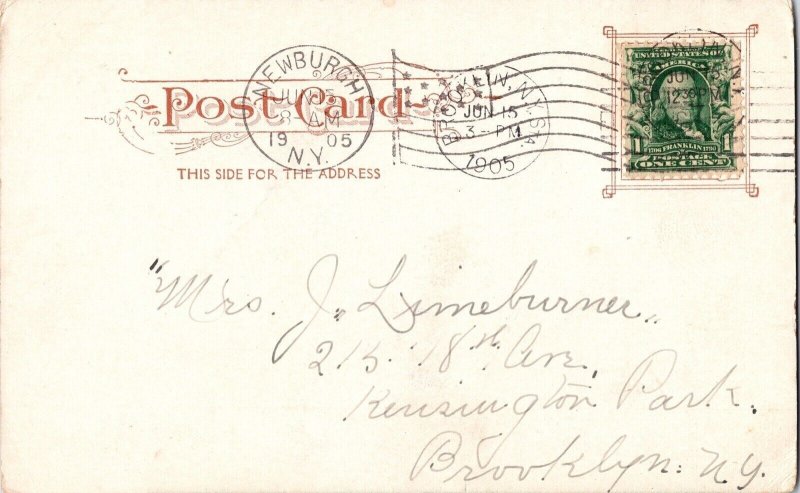 Post Card
THIS SIDE FOR THE ADDRESS
NEWBURGH
JUN 15
8 AM
19 05
N.Y.
BROOKLYN, N.Y. STA.
JUN 15
3 - PM
1905
UNITED STATES OF
AMERICA
1706 FRANKLIN 1790
1 POSTAGE 1
ONE CENT
"Mrs. J. Limeburner,
215. 18th Ave,
Kensington Park.
Brooklyn. N.Y.